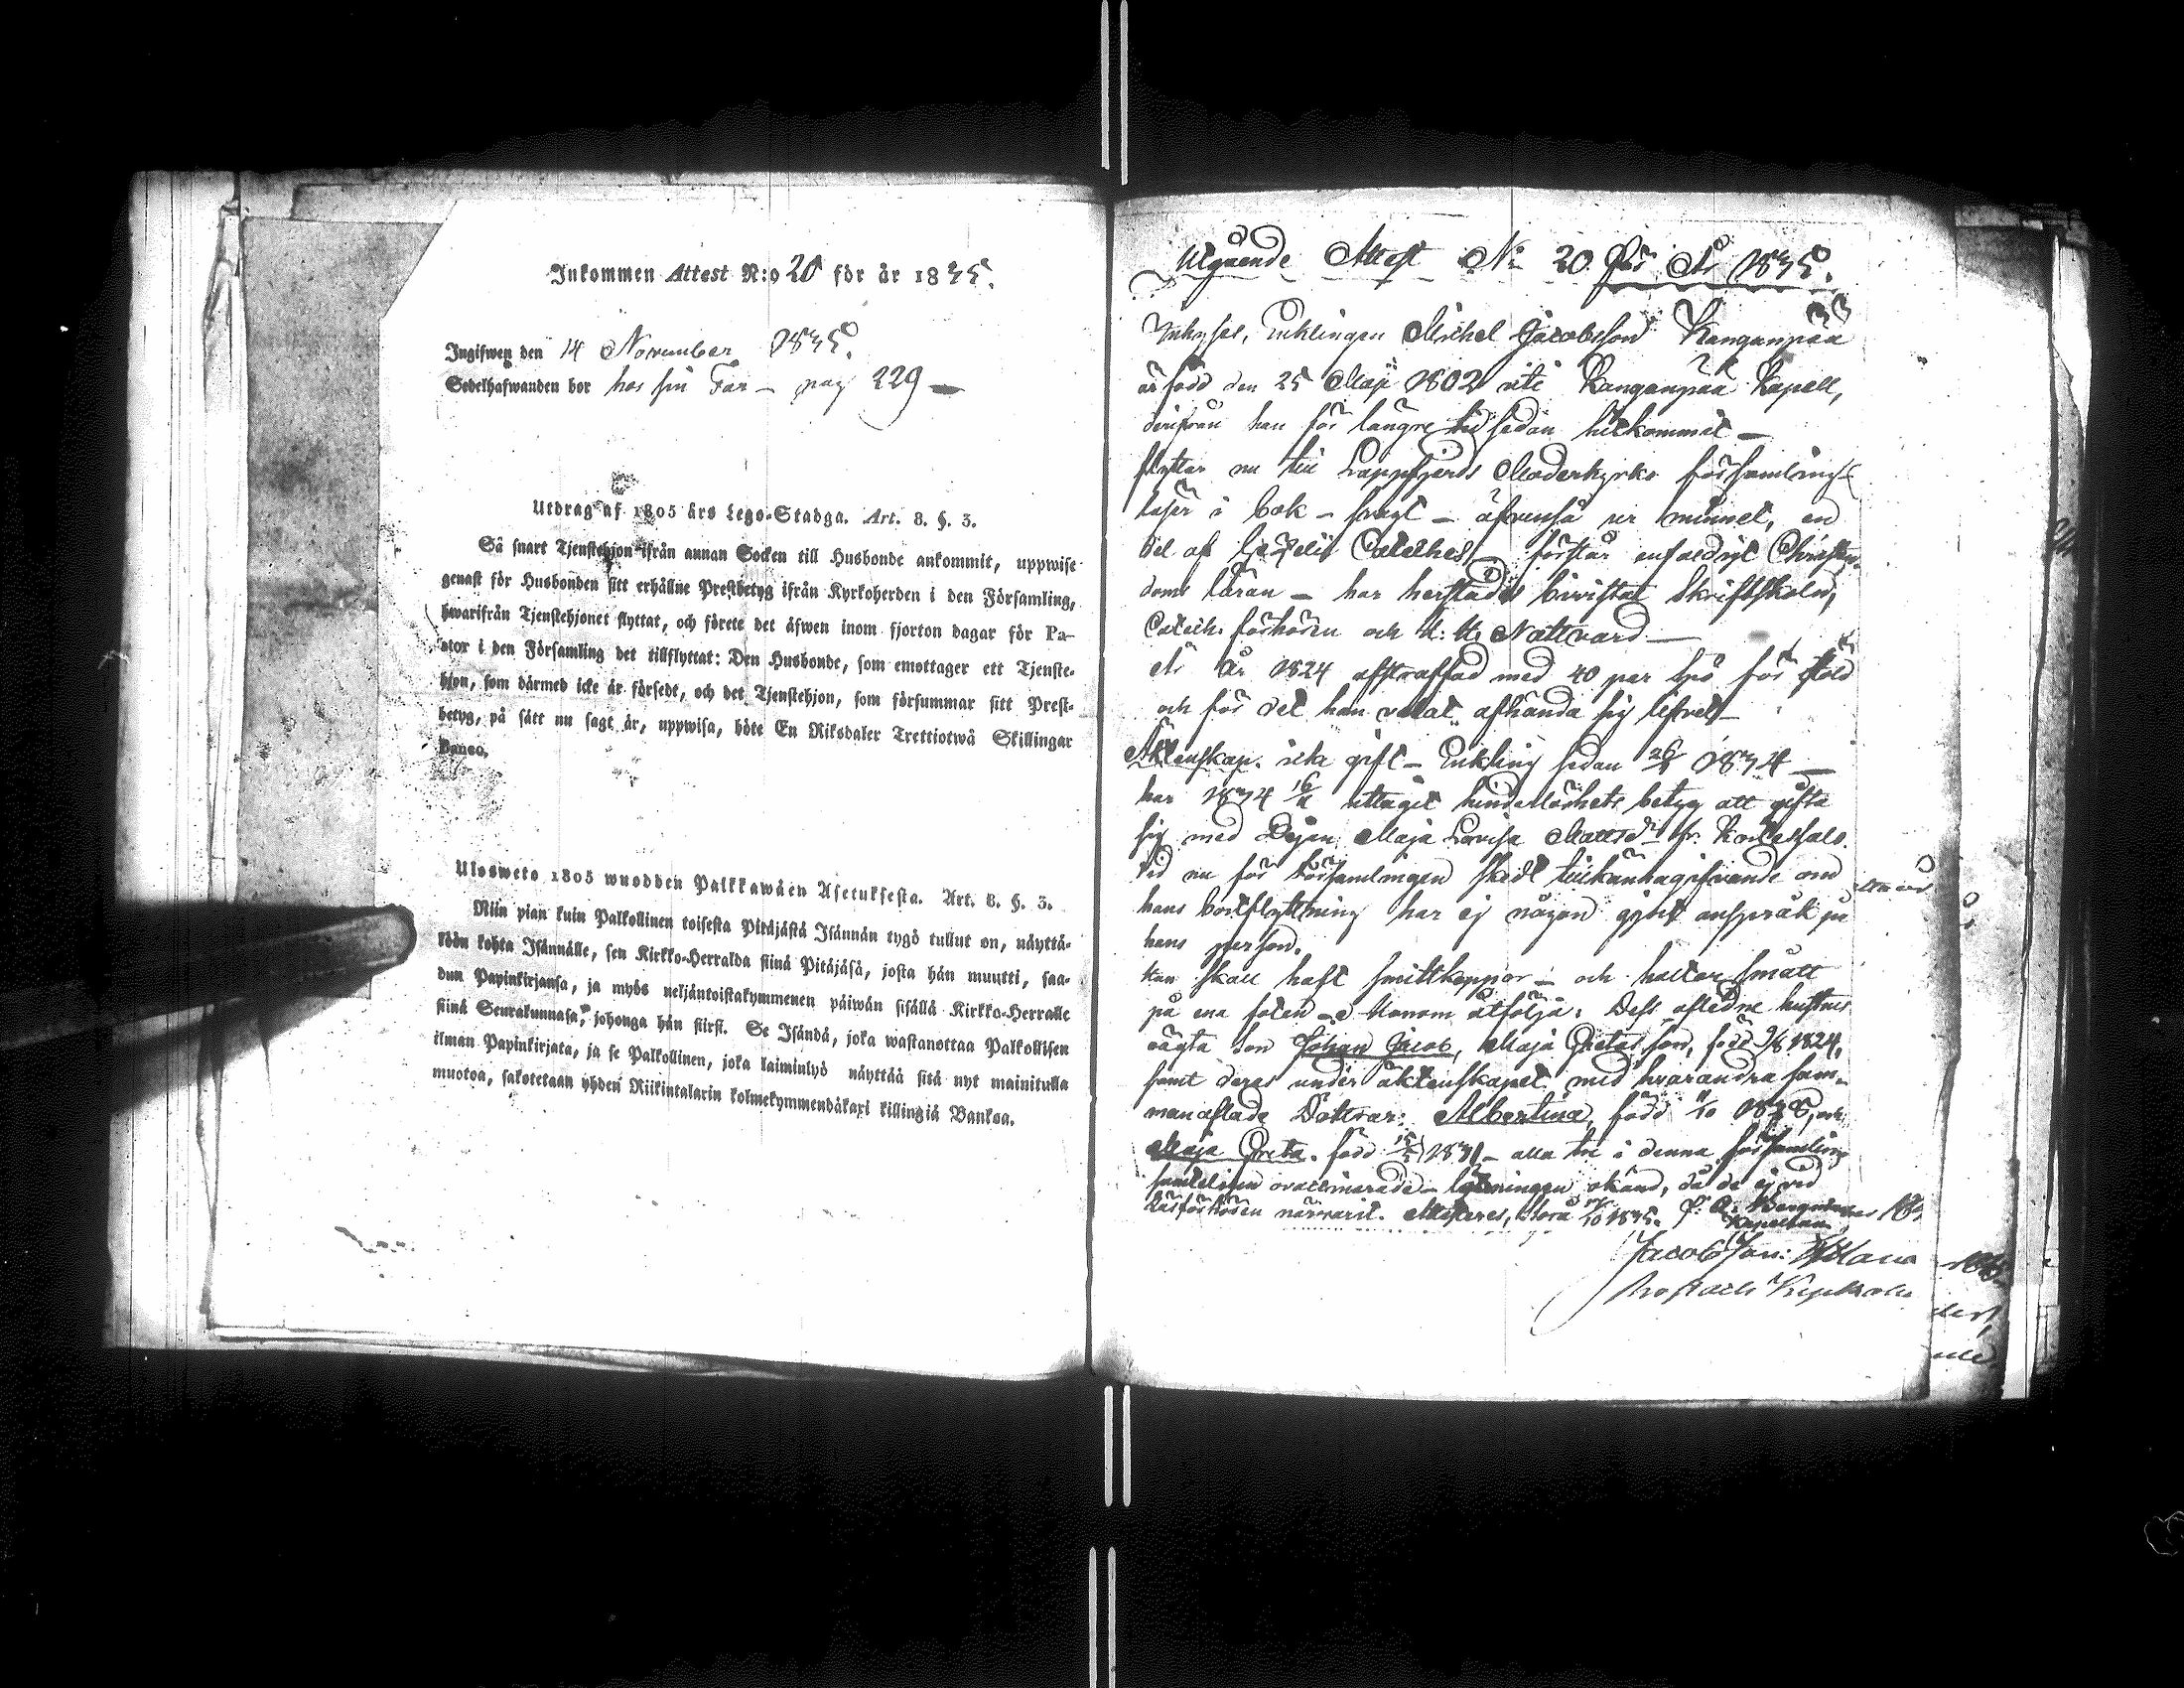 Inkommen Attest N:o 20 för år 1835.
Ingifwen den 14 November 1835.
Sedelhafwanden bor hos sin Far – pag 229 –
Utdrag af 1805 års Lego-Stadga. Art. 8. §. 3.
Så snart Tjenstehjon ifrån annan Socken till Husbonde ankommit, uppwise
genast för Husbonden sitt erhållne Prestbetyg ifrån Kyrkoherden i den Församling,
hwarifrån Tjenstehjonet flyttat, och förete det äfwen inom fjorton dagar för Pa-
stor i den Församling det tillflyttat: Den Husbonde, som emottager ett Tjenste-
hjon, som därmed icke är försedt, och det Tjenstehjon, som försummar sitt Prest-
betyg, på sätt nu sagt är, uppwisa, böte En Riksdaler Trettiotwå Skillingar
Banco.
Ulosweto 1805 wuodden Palkkawäen Asetuksesta. Art. 8. §. 3.
Niin pian kuin Palkollinen toisesta Pitäjästä Isännän tygö tullut on, näyttä-
köön kohta Isännälle, sen Kirkko-Herralda siinä Pitäjäsä, josta hän muutti, saa-
dun Papinkirjansa, ja myös neljäntoistakymmenen päiwän sisällä Kirkko-Herralle
siinä Seurakunnasa, johonga hän siirsi. Se Isändä, joka wastanottaa Palkollisen
ilman Papinkirjata, ja se Palkollinen, joka laiminlyö näyttää sitä nyt mainitulla
muotoa, sakotetaan yhden Riikintalarin kolmekymmendäkaxi killingiä Bankoa.
Utgående Attest N: 20 för År 1835.
Inhyses, Enklingen Michel Jacobsson Kanganpää
är född den 25 Maji 1802 uti Kanganpää Kapell,
derifrån han för längre tid sedan hitkommit –
flyttar nu till Lappfjerds Moderkyrko församling –
läser i bok – svagt – äfvenså ur minnet, en
del af Gezelii Cateches – förstår enfaldigt Christen-
doms läran – har herstädes bivistat Skriftskolor,
Catech. förhören och H: H. Nattvard –
Är År 1824 afstraffad med 40 par spö för stöld
och för det han velat afhända sig lifvet –
Äktenskap. icke gift – Enkling sedan 26/ 1834 –
har 1834 16/11 uttagit hinderlöshets betyg att gifta
sig med Pigan Maja Lovisa Mattsdr fr.
Vid nu för församlingen skedt tillkännagifvande om
hans bortflyttning har ej någon gjort anspråk på
hans person.
Han skall haft smittkoppor – och haltar smått
på ena foten – Honom åtfölja: Dess aflidne hustrus
oägta son Johan Jacob, Maja Gretas son, född 1824,
samt deras under äktenskapet med hvarandra sam-
manaflade Döttrar: Albertina, född /10 1828, och
Maja Greta, född 15/ 1831 – alla tre i denna församling
ovaccinerade – okänd, då de ej vid
Läsförhören närvarit. Attesteras, 1835.
Kapellan